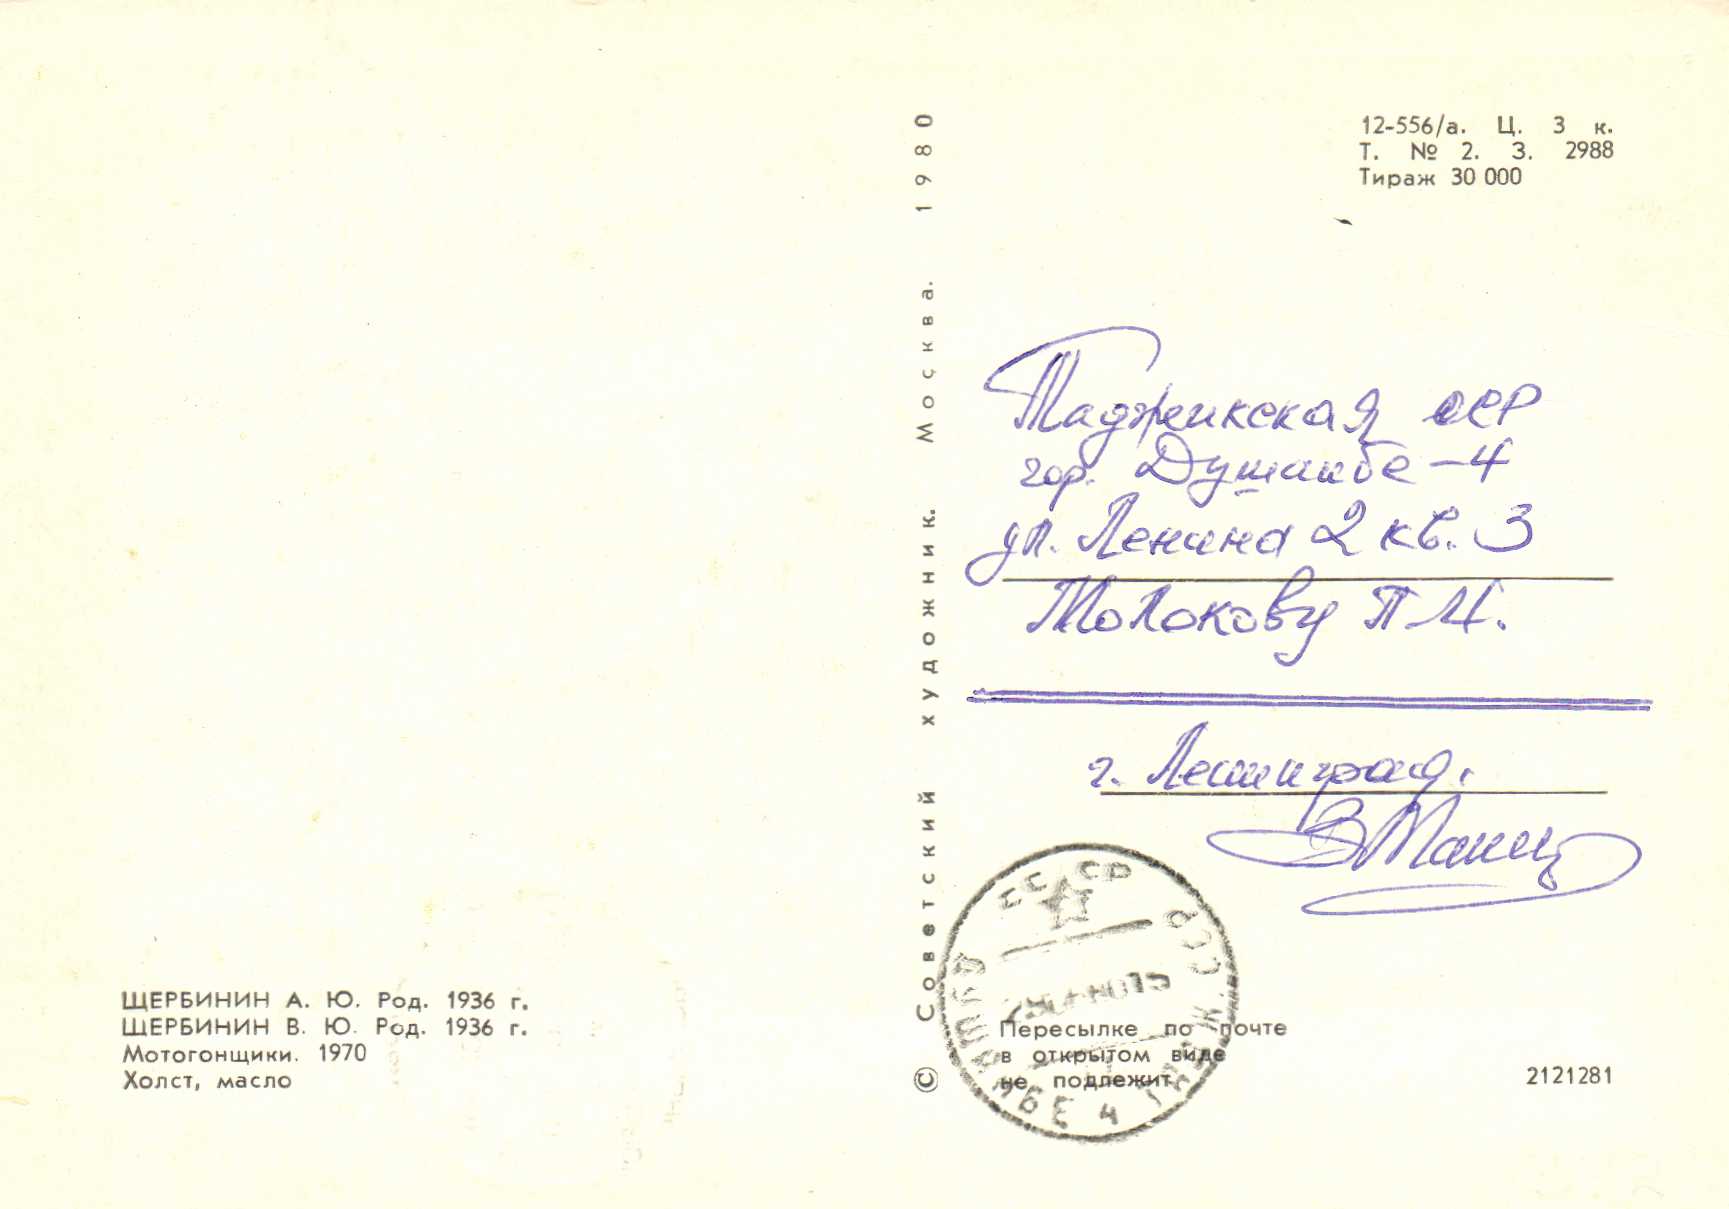 12-556/а. Ц. 3 к.
Т. № 2. З. 2988
Тираж 30 000
Советский художник. Москва. 1980
Таджикская ССР
гор. Душанбе-4
ул. Ленина 2 кв. 3
Толокову П.И.
г. Ленинград.
СССР
ДУШАНБЕ 4 ТАДЖ. ССР
ЩЕРБИНИН А. Ю. Род. 1936 г.
ЩЕРБИНИН В. Ю. Род. 1936 г.
Мотогонщики. 1970
Холст, масло
©
Пересылке по почте
в открытом виде
не подлежит
2121281